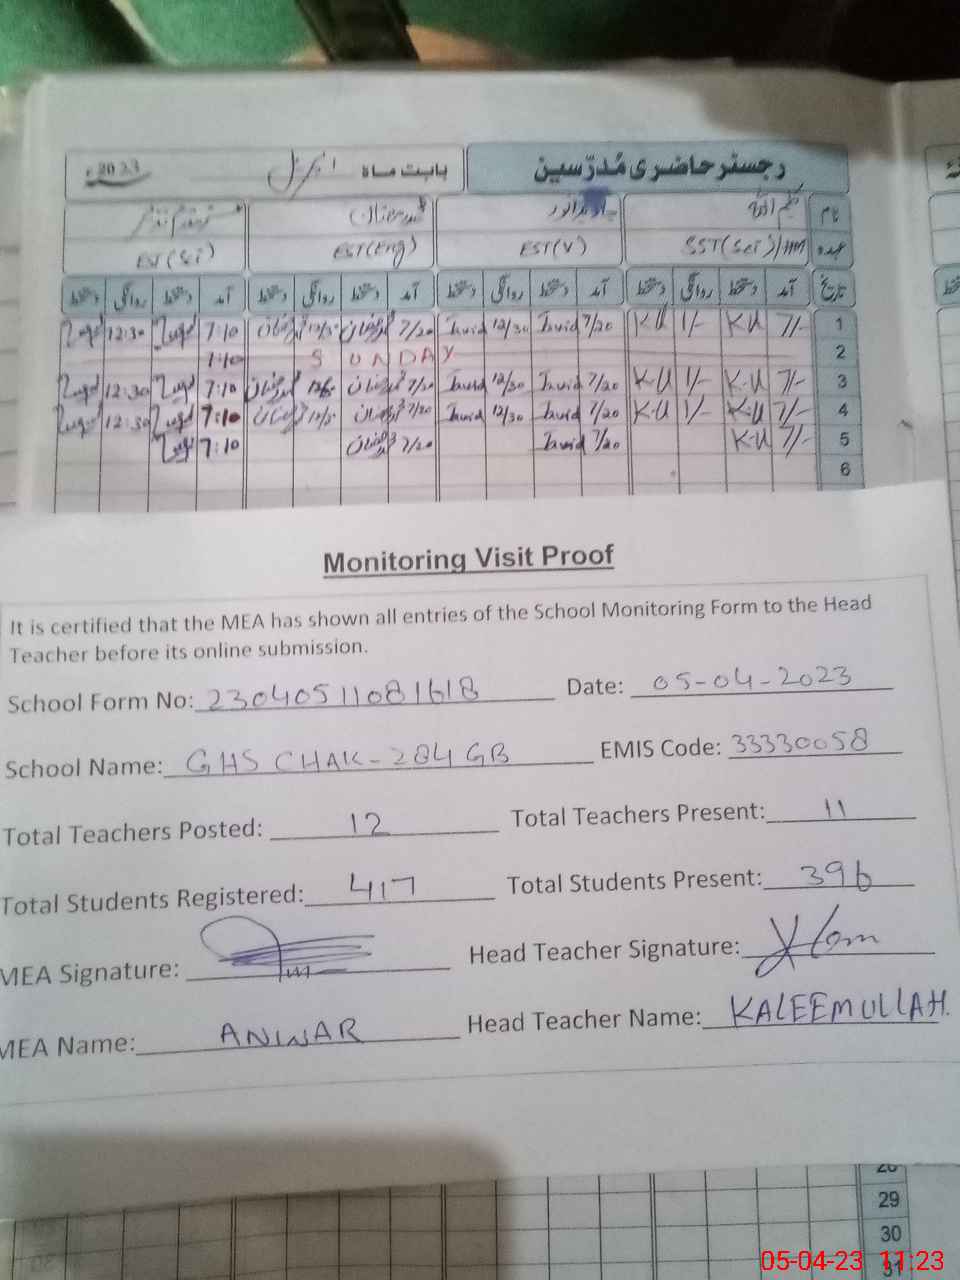 رجسٹر حاضری مُدرّسین بابت ماہ اپریل 2023ء
نام کلیم اللہ
عہدہ SST(Sci)/HM EST(V) EST(Eng) EST(Sci)
تاریخ آمد دستخط روانگی دستخط آمد دستخط روانگی دستخط آمد دستخط روانگی دستخط آمد دستخط روانگی دستخط
1 7/- K.U 1/- K.U 7/20 Javid 12/30 Javid 7/20 7:10 12:30
2 SUNDAY 7:10
3 7/- K.U 1/- K.U 7/20 Javid 12/30 Javid 7/20 7:10 12:30
4 7/- K.U 1/- K.U 7/20 Javid 12/30 Javid 7/20 7:10 12:30
5 7/- K.U 7/20 Javid 7/20 7:10
6
Monitoring Visit Proof
It is certified that the MEA has shown all entries of the School Monitoring Form to the Head
Teacher before its online submission.
School Form No: 23040511081618 Date: 05-04-2023
School Name: GHS CHAK-284 GB EMIS Code: 33330058
Total Teachers Posted: 12 Total Teachers Present: 11
Total Students Registered: 417 Total Students Present: 396
MEA Signature: Head Teacher Signature:
MEA Name: ANWAR Head Teacher Name: KALEEMULLAH.
29
30
31
05-04-23 11:23